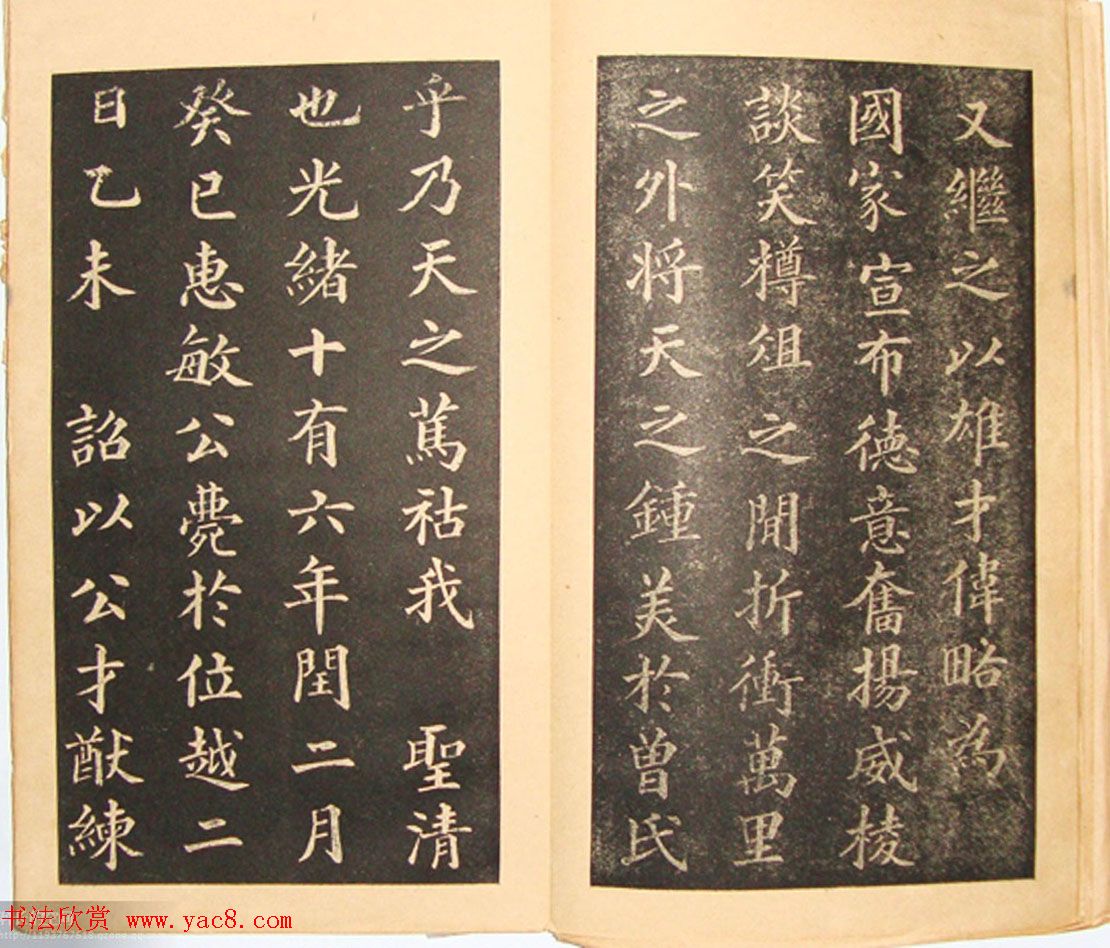 又繼之以雄才偉略為
國家宣布德意奮揚威棱
談笑樽俎之閒折衝萬里
之外將天之鍾美於曾氏
乎乃天之篤祜我 聖清
也光緒十有六年閏二月
癸巳惠敏公薨於位越二
日乙未 詔以公才猷練
书法欣赏 www.yac8.com